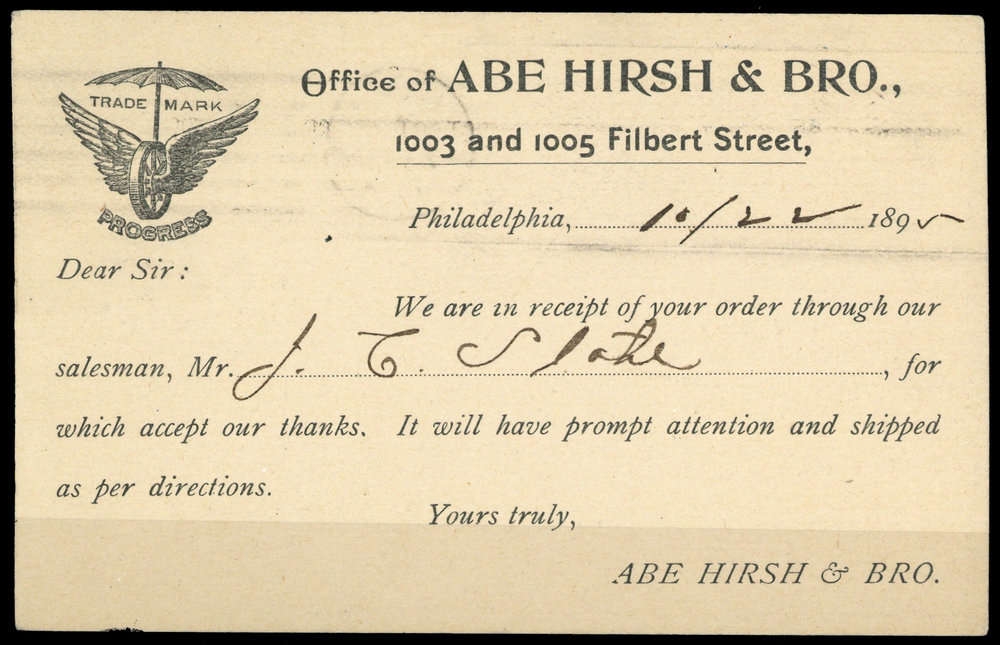 TRADE MARK
PROGRESS
Office of ABE HIRSH & BRO.,
1003 and 1005 Filbert Street,
Philadelphia, 10/22 1895
Dear Sir:
We are in receipt of your order through our
salesman, Mr. J. C. , for
which accept our thanks. It will have prompt attention and shipped
as per directions.
Yours truly,
ABE HIRSH & BRO.